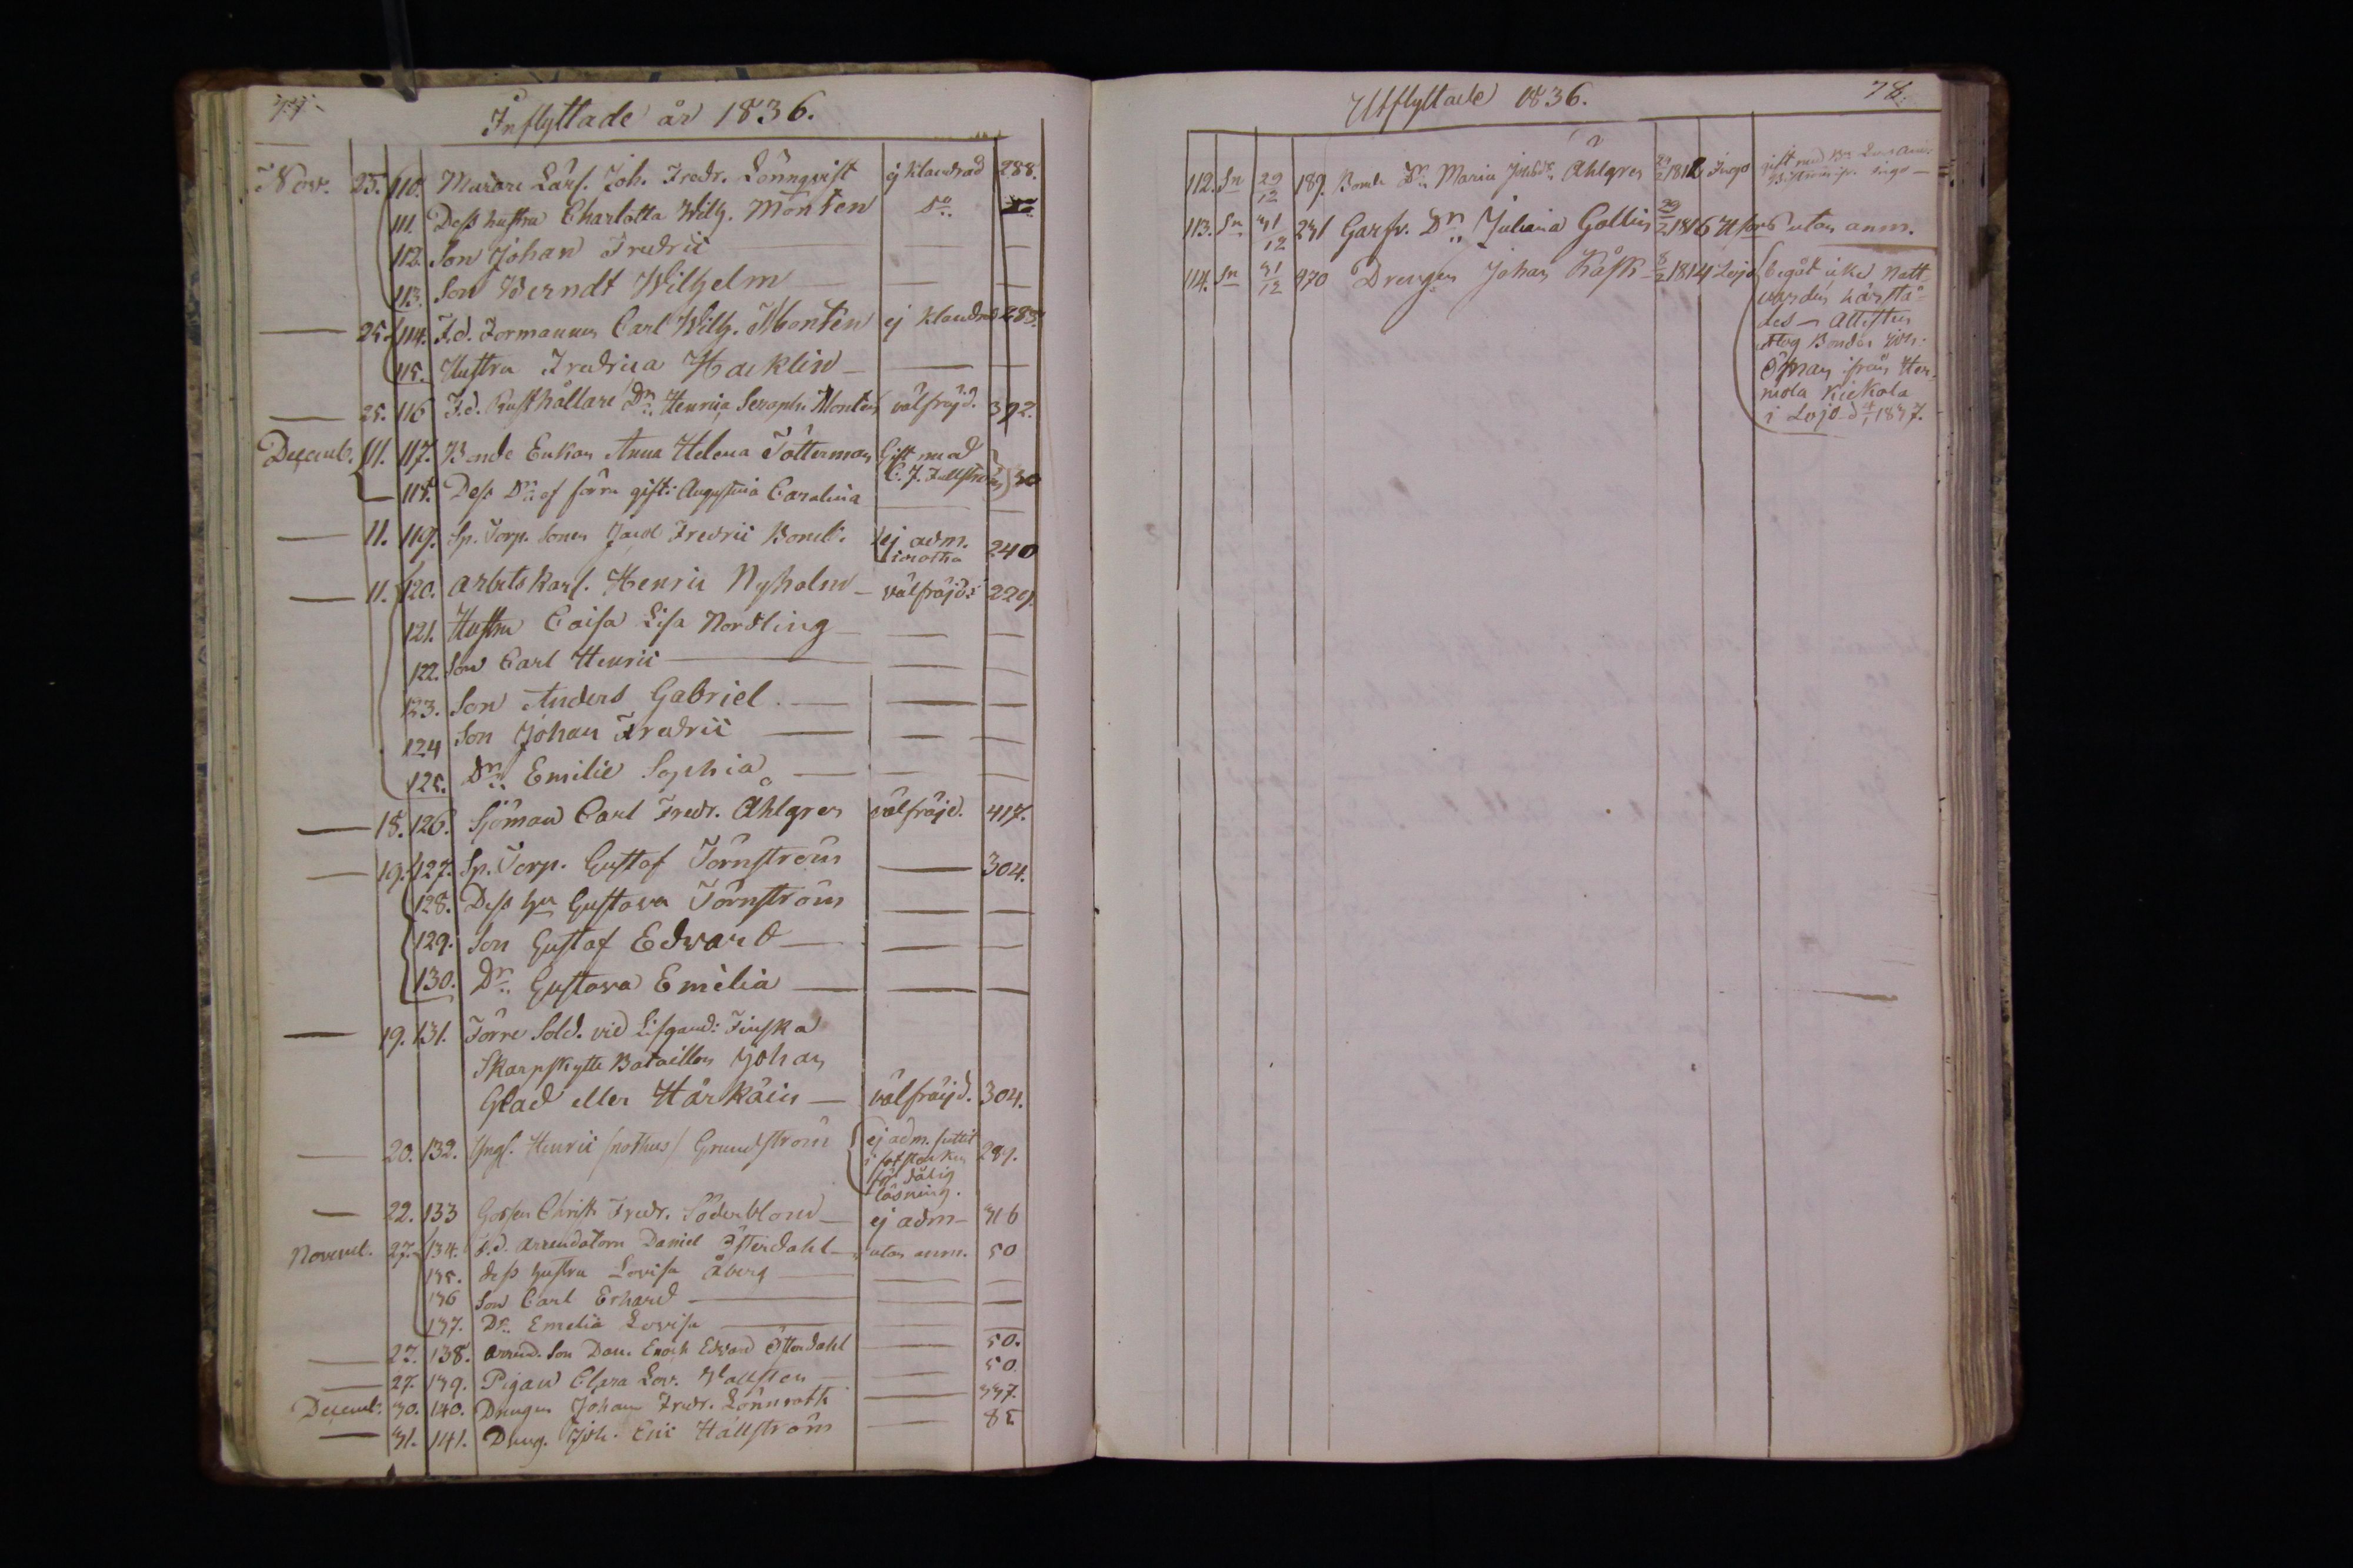 77.
Inflyttade år 1836.
Nov. 25. 110. Murare Lärl. Joh. Fredr. Lönnqvist ej klandrad 288.
111. Dess hustru Charlotta Wilh. Montén do
112. Son Johan Fredric — —
113. Son Berndt Wilhelm — — —
— 25. 114. F.d. Formannen Carl Wilh. Montén ej klandrad 285.
115. Hustru Fredrica Hacklin — — —
— 25. 116 F.d. Rusthållare Dr. Henrica Seraph. Montén välfräjd. 392.
Decemb. 11. 117. Bonde Enkan Anna Helena Tötterman Gift med C. J. Fallström 30
118. Dess Dr. af förra gift: Augustina Carolina — —
— 11. 119. Sp. Torp. Sonen Jacob Fredric Bomb: ej adm. 240
— 11. 120. Arbets Karl. Henric Nyholm — välfräjd: 229.
121. Hustru Caisa Lisa Nordling — — —
122. Son Carl Henric — — —
123. Son Anders Gabriel. — — —
124 Son Johan Fredric — — —
125. Dr. Emilie Sophia — — —
— 18. 126. Sjöman Carl Fredr. Åhlgren välfräjd. 417.
— 19. 127. Sp. Torp. Gustaf Törnström — 304.
128. Dess Hu Gustava Törnström — —
129. Son Gustaf Edvard — — —
130. Dr. Gustava Emelia — — —
— 19. 131. Förre Sold. vid Lifgard: Finska
Skarpskytte Bataillon Johan
Glad eller Härkäin — välfräjd. 304.
— 20. 132. Yngl. Henric (nothus) Grundström ej adm. suttit 289.
i fotstocken
för dålig
läsning.
— 22. 133 Gossen Christ. Fredr. Söderblom — ej adm — 316
Novemb. 27. 134. F.d. Arrendatorn Daniel Österdahl — utan anm. 50
135. dess hustru Lovisa Åberg — — —
136 Son Carl Erhard — — —
137. Dr. Emelia Lovisa — — —
— 27. 138. Arrend. Son Dan. Enoch Edvard Österdahl — 50.
— 27. 139. Pigan Clara Lov. — 50
Decemb. 30. 140. Drengen Johan Fredr. Lönnroth — 337.
— 31. 141. Dreng. Joh. Eric Hällström — 85
Utflyttade 1836. 78.
112. Sn 29/12 189. Bonde Dr. Maria Jacobsdr. Åhlgren 1812 Ingo gift med
113. Sn 31/12 231 Garfv. Dr. Juliana Gallin 29/2 1816 H:fors utan anm.
114. Sn 31/12 370 Drengen Johan Kåsk 8/2 1814 Lojo begått icke Natt
varden härstä
des — Attesten
uttog Bonden Joh.
Öhman ifrån Hen
nola Kiekola
i Lojo d. 1837.